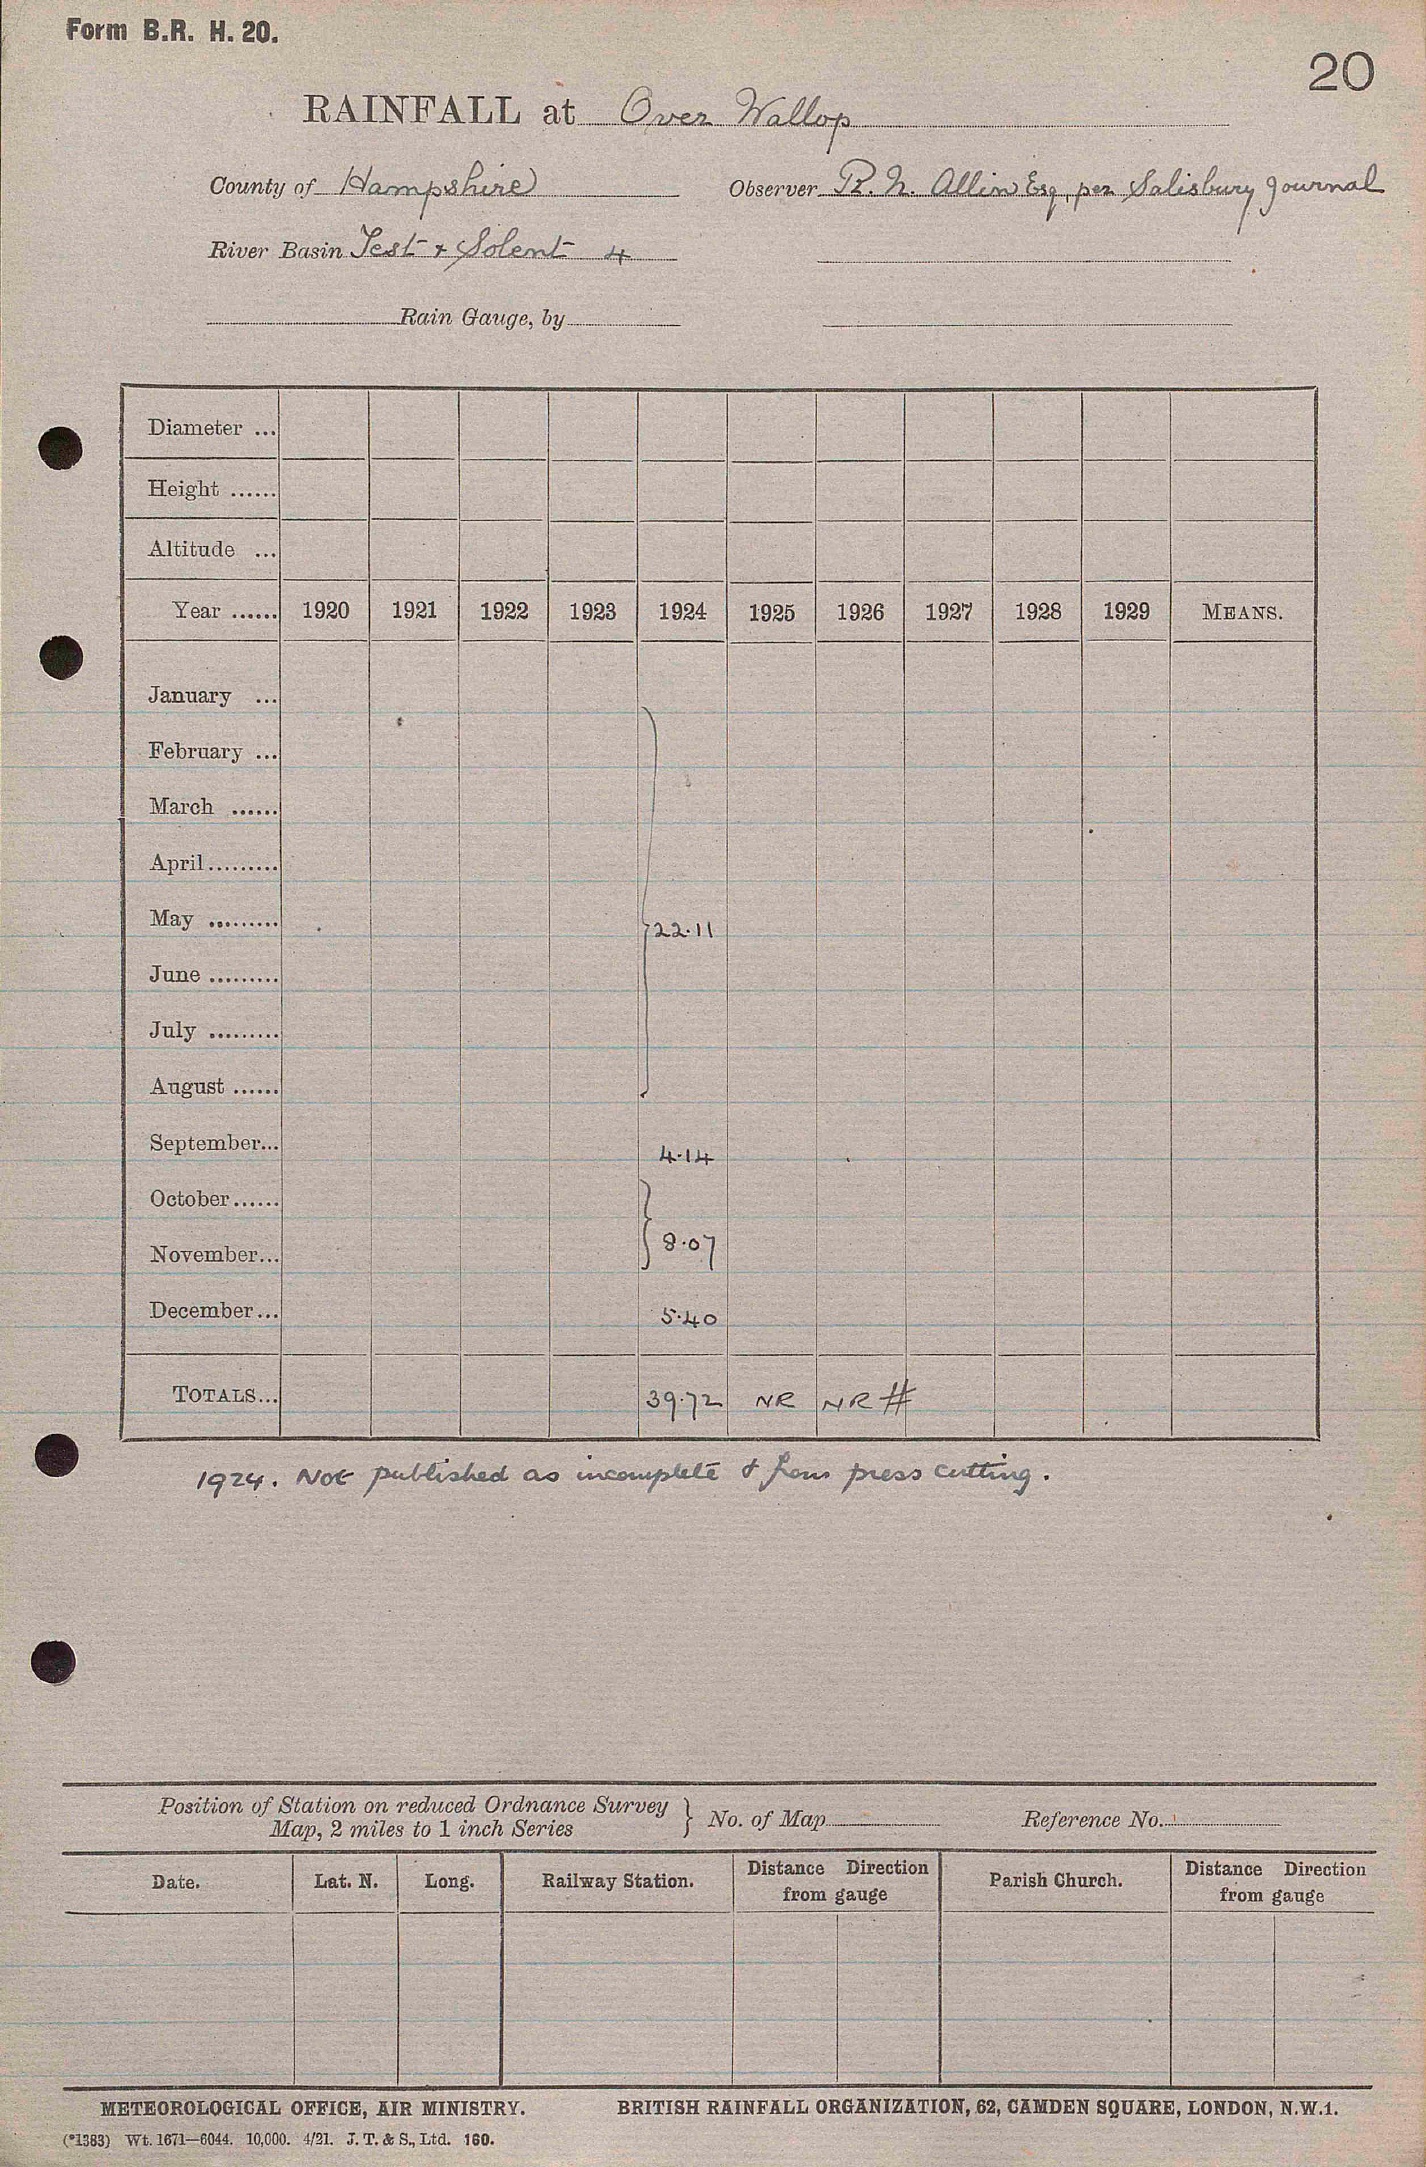 Form B.R. H. 20.
20
RAINFALL at Over Wallop
County of Hampshire Observer R. N. Allin Esq, per Salisbury Journal
River Basin Test + Solent 4
Rain Gauge, by
Diameter ...
Height ......
Altitude ...
Year ...... 1920 1921 1922 1923 1924 1925 1926 1927 1928 1929 MEANS.
January ...
February ...
March ......
April.........
May ......... } 22.11
June .........
July .........
August ......
September... 4.14
October......
November... } 8.07
December... 5.40
TOTALS... 39.72 NR NR #
1924. Not published as incomplete & from press cutting.
Position of Station on reduced Ordnance Survey
Map, 2 miles to 1 inch Series } No. of Map Reference No.
Date. Lat. N. Long. Railway Station. Distance Direction from gauge Parish Church. Distance Direction from gauge
METEOROLOGICAL OFFICE, AIR MINISTRY. BRITISH RAINFALL ORGANIZATION, 62, CAMDEN SQUARE, LONDON, N.W.1.
(*1383) Wt. 1671—6044. 10,000. 4/21. J. T. & S., Ltd. 160.